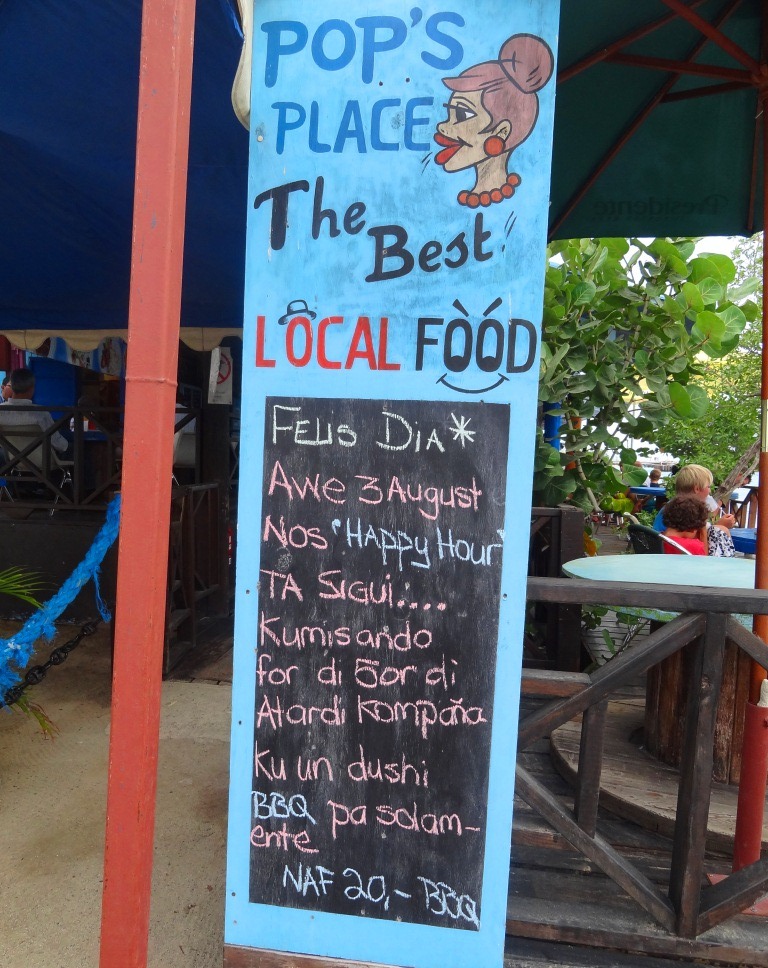 POP'S
PLACE
The
Best!
LOCAL FOOD
FELIS DIA*
AWE 3 August
NOS "HAPPY HOUR"
TA SIGUI....
Kumisando
for di 5or di
Atardi Kompaña
Ku un dushi
BBQ pa solam-
ente
NAF 20,- BBQ
Presidente